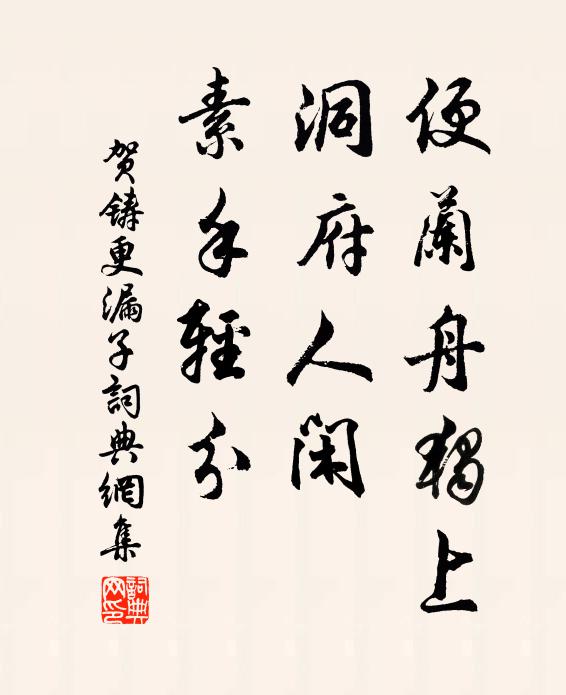 便蘭舟獨上
洞府人閑
素手輕分
贺鑄更漏子詞典網集
詞典网印